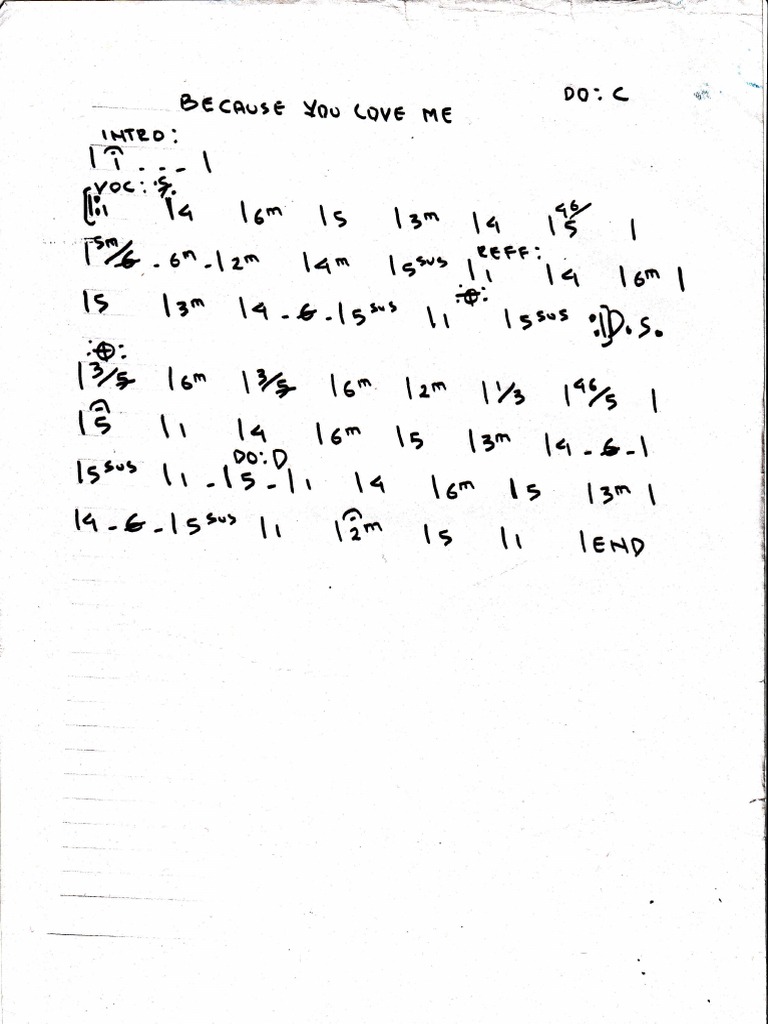 BECAUSE YOU LOVE ME DO: C
INTRO:
| 1 . . . |
VOC: 𝄋
[|: 1 | 4 | 6m | 5 | 3m | 4 | 46/5 |
| 5m/6 . 6m . | 2m | 4m | 5sus REFF: | 1 | 4 | 6m |
| 5 | 3m | 4 . 6 . | 5sus | 1 𝄌 | 5sus :|] D.S.
𝄌
| 3/5 | 6m | 3/5 | 6m | 2m | 1/3 | 46/5 |
| 5 | 1 | 4 | 6m | 5 | 3m | 4 . 6 . |
DO: D
| 5sus | 1 . | 5 . | 1 | 4 | 6m | 5 | 3m |
| 4 . 6 . | 5sus | 1 | 2m | 5 | 1 | END